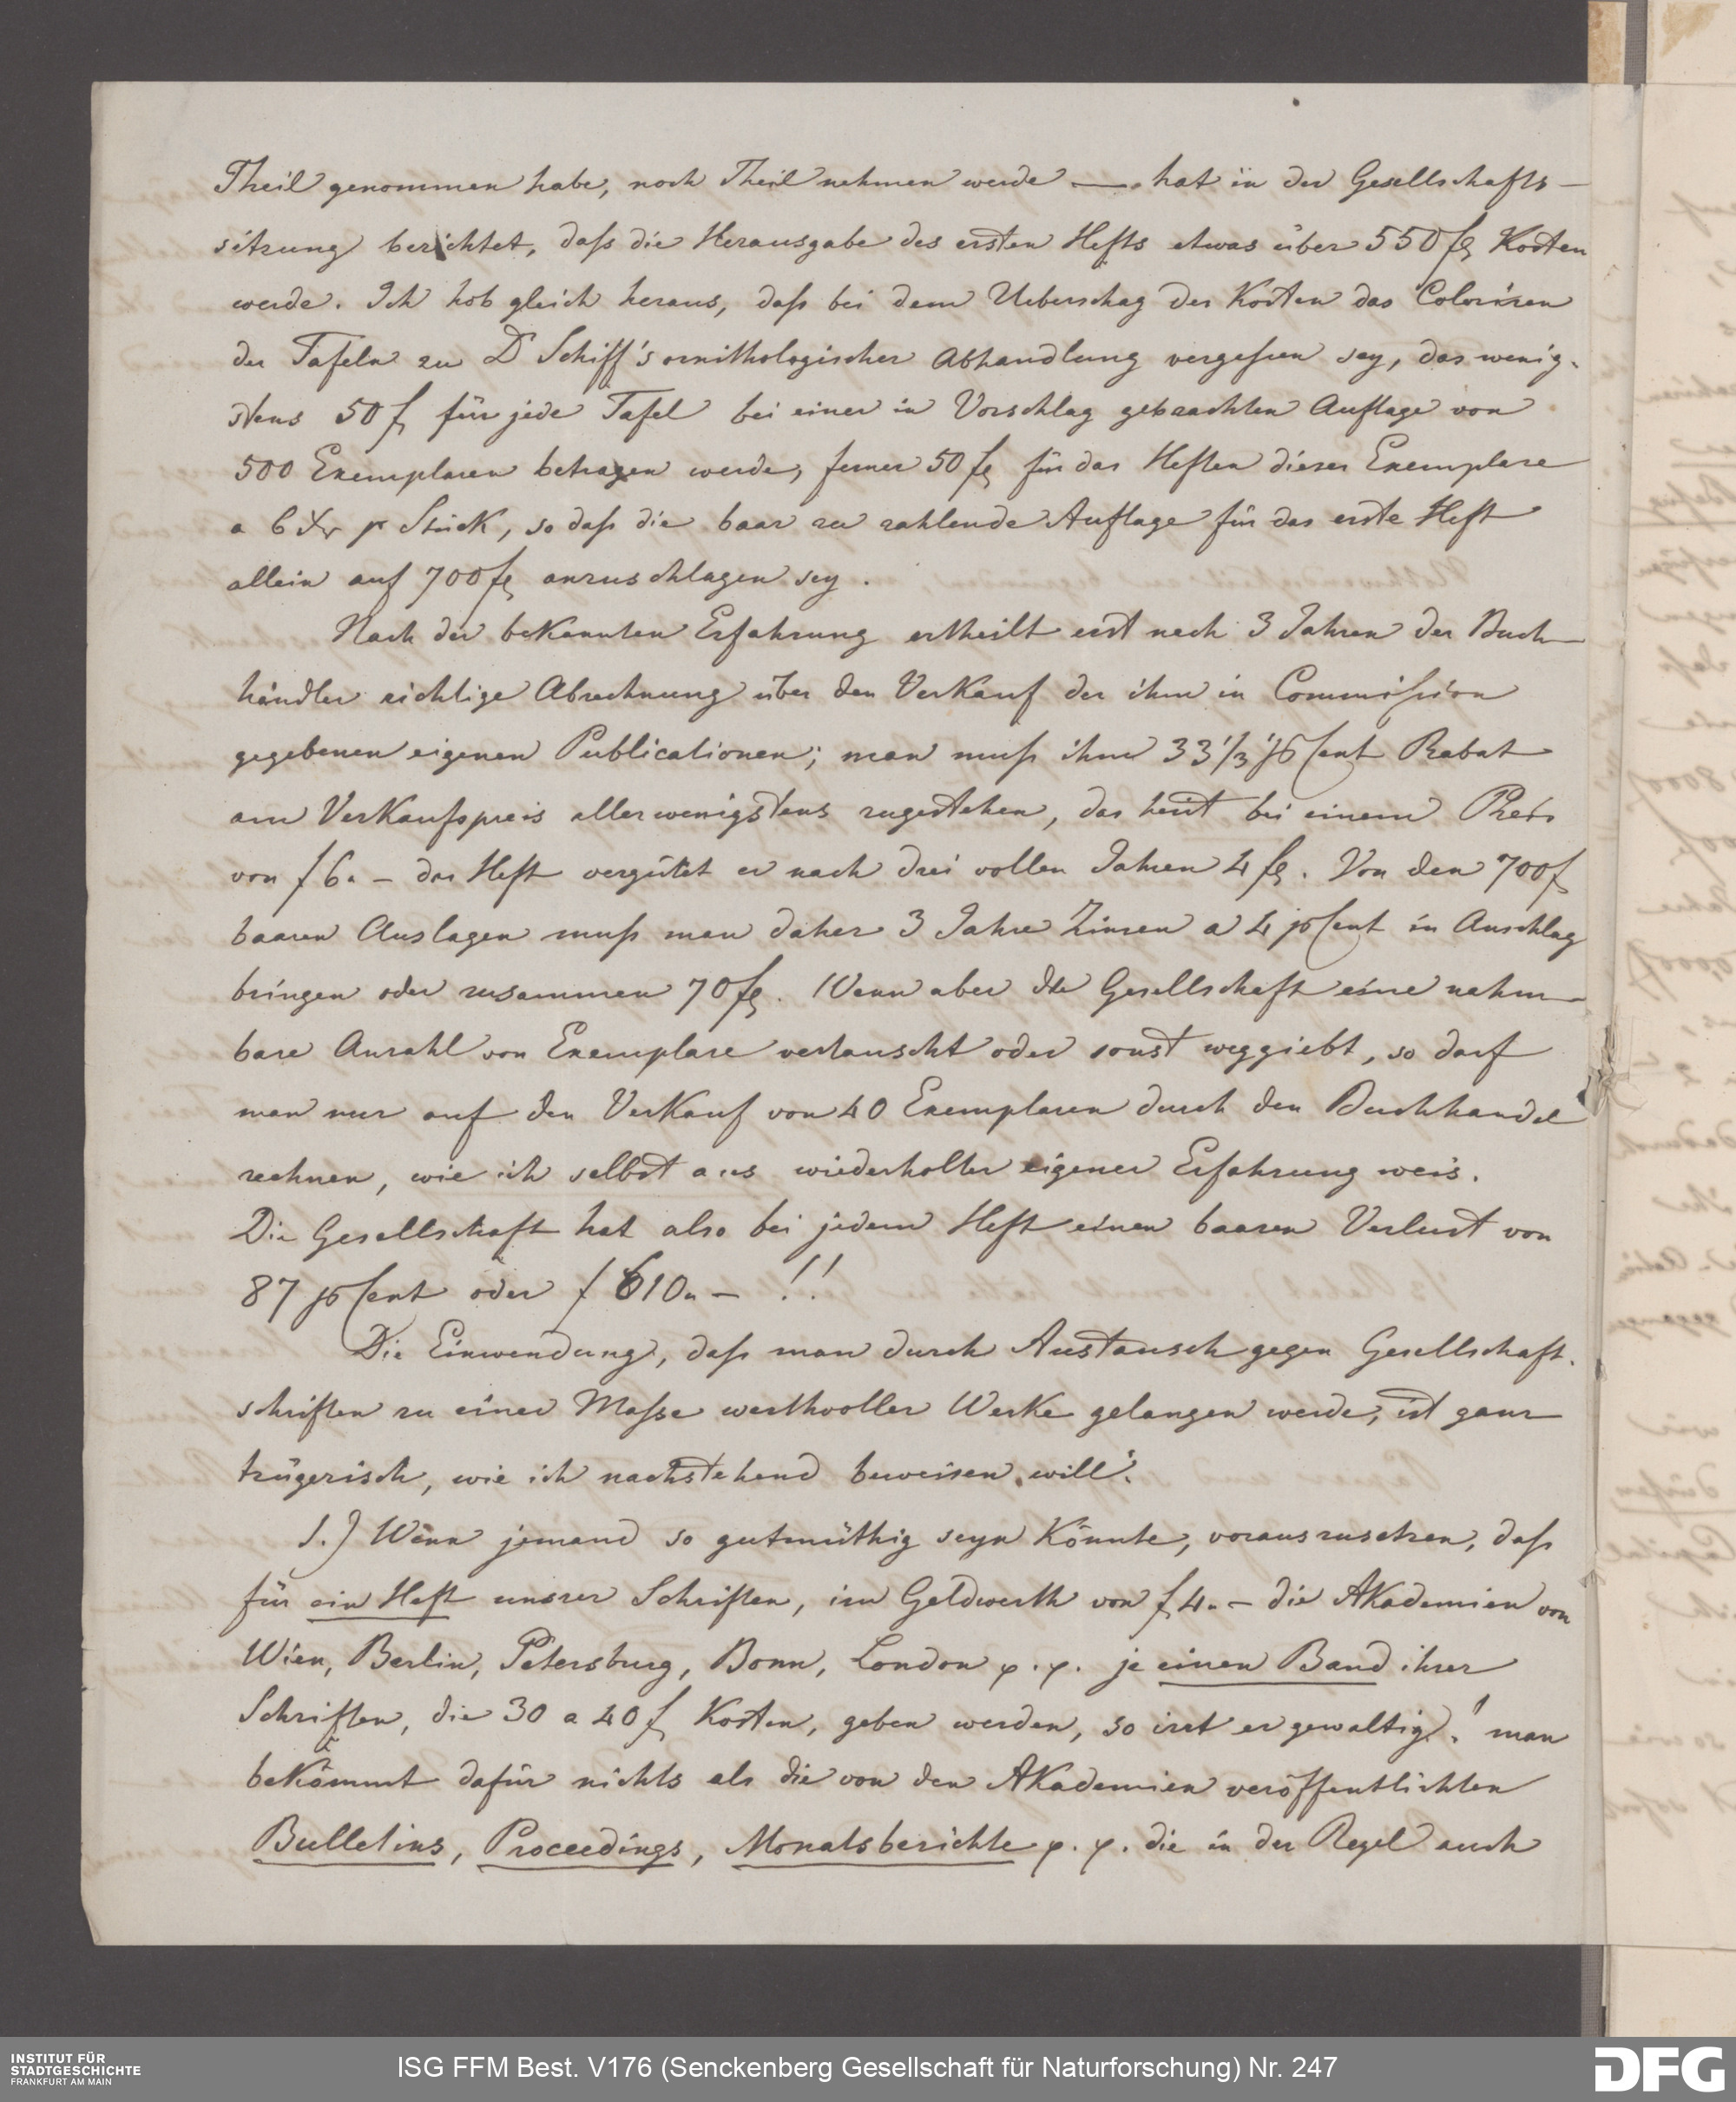 Theil genommen habe, noch Theil nehmen werde —. hat in der Gesellschafts-
sitzung berichtet, daß die Herausgabe des ersten Hefts etwas über 550 fl Kosten
werde. Ich hob gleich heraus, daß bei dem Ueberschag der Kosten das Coloriren
der Tafeln zu Dr Schiff's ornithologischer Abhandlung vergessen sey, das wenig-
stens 50 f für jede Tafel bei einer in Vorschlag gebrachten Auflage von
500 Exemplaren betragen werde, ferner 50 fl für das Heften dieser Exemplare
a 6 Xr pr Stück, so daß die baar zu zahlende Auflage für das erste Heft
allein auf 700 fl anzuschlagen sey.
Nach der bekannten Erfahrung ertheilt erst nach 3 Jahren der Buch-
händler richtige Abrechnung über den Verkauf der ihm in Commission
gegebenen eigenen Publicationen; man muß ihm 33 1/3 pCent Rabat
am Verkaufspreis allerwenigstens zugestehen, das heist bei einem Preis
von f 6.- das Heft vergütet er nach drei vollen Jahren 4 fl. Von den 700 f
baaren Auslagen muß man daher 3 Jahre Zinsen a 4 pCent in Anschlag
bringen oder zusammen 70 fl. Wenn aber die Gesellschaft eine nahm-
bare Anzahl von Exemplare vertauscht oder sonst weggiebt, so darf
man nur auf den Verkauf von 40 Exemplaren durch den Buchhandel
rechnen, wie ich selbst aus wiederholter eigener Erfahrung weis.
Die Gesellschaft hat also bei jedem Heft einen baaren Verlust von
87 pCent oder f 610.- !!
Die Einwendung, daß man durch Austausch gegen Gesellschaft-
schriften zu einer Masse werthvoller Werke gelangen werde, ist ganz
trügerisch, wie ich nachstehend beweisen will.
1.) Wenn jemand so gutmüthig seyn könnte, vorauszusetzen, daß
für ein Heft unsrer Schriften, im Geldwerth von f 4.- die Akademien von
Wien, Berlin, Petersburg, Bonn, London p. p. je einen Band ihrer
Schriften, die 30 a 40 f Kosten, geben werden, so irrt er gewaltig! man
bekömmt dafür nichts als die von den Akademien veröffentlichten
Bulletins, Proceedings, Monatsberichte p. p. die in der Regel auch
INSTITUT FÜR
STADTGESCHICHTE
FRANKFURT AM MAIN
ISG FFM Best. V176 (Senckenberg Gesellschaft für Naturforschung) Nr. 247
DFG